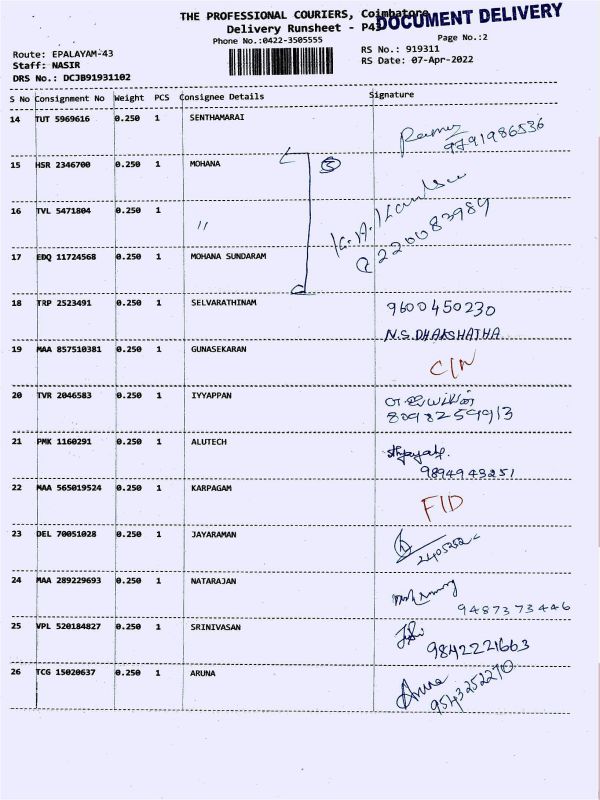 THE PROFESSIONAL COURIERS, Coimbatore
DOCUMENT DELIVERY
Delivery Runsheet - P43
Phone No.:0422-3505555
Page No.:2
Route: EPALAYAM-43
RS No.: 919311
Staff: NASIR
RS Date: 07-Apr-2022
DRS No.: DCJB91931102
S No Consignment No Weight PCS Consignee Details Signature
14 TUT 5969616 0.250 1 SENTHAMARAI
9791986536
15 HSR 2346700 0.250 1 MOHANA
16 TVL 5471804 0.250 1 "
17 EDQ 11724568 0.250 1 MOHANA SUNDARAM
18 TRP 2523491 0.250 1 SELVARATHINAM 9600450230
N.S.DHAKSHATHA
19 MAA 857510381 0.250 1 GUNASEKARAN C/N
20 TVR 2046583 0.250 1 IYYAPPAN
8098259913
21 PMK 1160291 0.250 1 ALUTECH
9894943251
22 MAA 565019524 0.250 1 KARPAGAM FID
23 DEL 70051028 0.250 1 JAYARAMAN
24 MAA 289229693 0.250 1 NATARAJAN
9487373446
25 VPL 520184827 0.250 1 SRINIVASAN
9842221663
26 TCG 15020637 0.250 1 ARUNA Aruna
9543252270